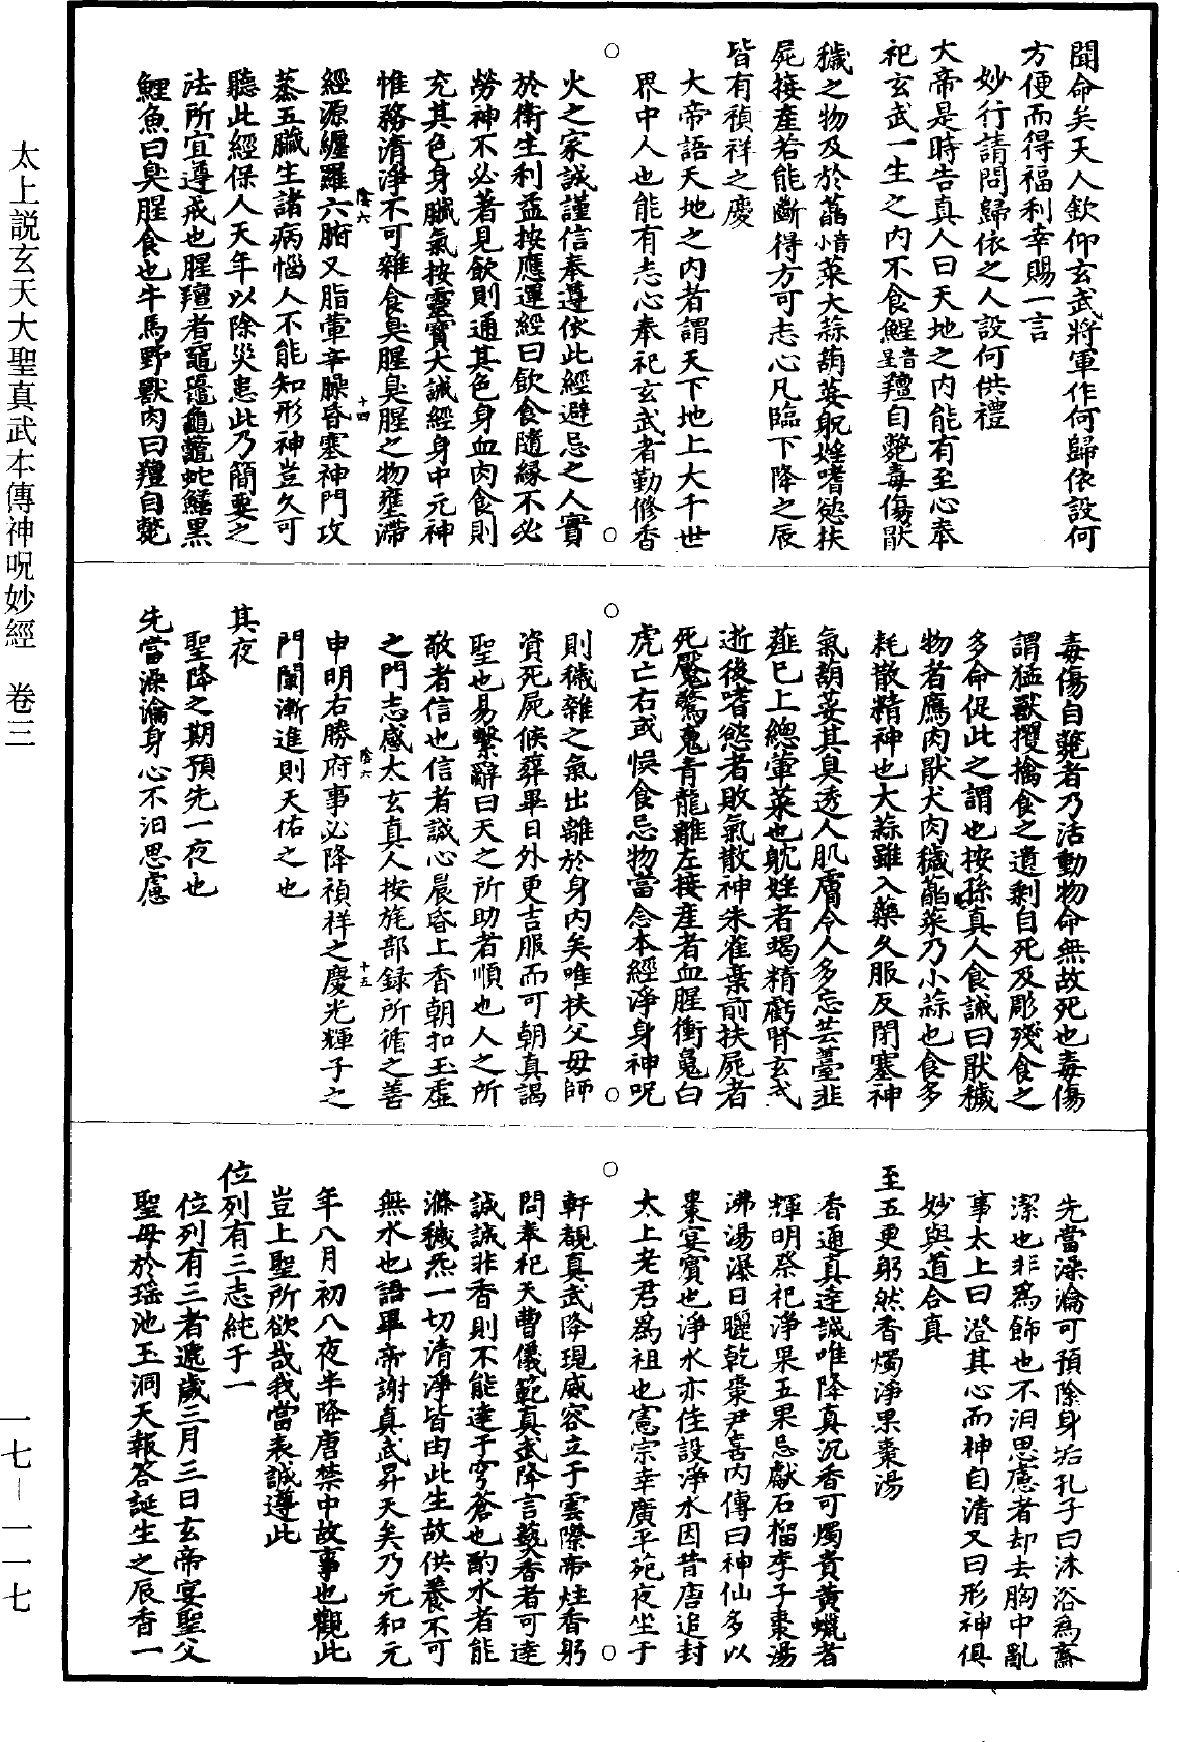 聞命矣天人欽仰玄武將軍作何歸依設何
方便而得福利幸賜一言
妙行請問歸依之人設何供禮
大帝是時告真人曰天地之内能有至心奉
祀玄武一生之内不食鯹音呈羶自斃毒傷猒
穢之物及於蒚音小菜大蒜葫荽躭婬嗜慾扶
屍接產若能斷得方可志心凡臨下降之辰
皆有禎祥之慶
大帝語天地之内者謂天下地上大千世
界中人也能有志心奉祀玄武者勤修香
火之家誠謹信奉遵依此經避忌之人實
於衛生利益按應運經曰飲食隨緣不必
勞神不必著見飲則通其色身血肉食則
充其色身臟氣按靈寶大誡經身中元神
惟務清淨不可雜食臭腥臭腥之物壅滯
經源纏羅六腑又脂葷辛臊昏塞神門攻
蒸五臟生諸病惱人不能知形神豈久可
聽此經保人天年以除災患此乃簡要之
法所宜遵戒也腥羶者黿鼉龜鼈蛇鱔黑
鯉魚曰臭腥食也牛馬野獸肉曰羶自斃
毒傷自斃者乃活動物命無故死也毒傷
謂猛獸攫擒食之遺剩自死及彫殘食之
多命促此之謂也按孫真人食誡曰猒穢
物者鴈肉猒犬肉穢蒚菜乃小蒜也食多
耗散精神也大蒜雖入藥久服反閉塞神
氣葫荽其臭透人肌膚令人多忘芸薹韭
薤巳上總葷菜也躭婬者竭精虧腎玄武
逝後嗜慾者敗氣散神朱雀棄前扶屍者
死魘驚䰟青龍離左接產者血腥衝䰟白
虎亡右或悞食忌物當念本經淨身神呪
則穢雜之氣出離於身内矣唯扶父母師
資死屍候葬畢日外更吉服而可朝真謁
聖也易繫辭曰天之所助者順也人之所
敬者信也信者誠心晨昏上香朝扣玉虛
之門志感太玄真人按旄部錄所循之善
申明右勝府事必降禎祥之慶光輝子之
門闌漸進則天佑之也
其夜
聖降之期預先一夜也
先當澡瀹身心不汨思慮
先當澡瀹可預除身垢孔子曰沐浴為齋
潔也非為飾也不汨思慮者却去胸中亂
事太上曰澄其心而神自清又曰形神俱
妙與道合真
至五更躬然香燭淨果棗湯
香通真達誠唯降真沉香可燭貴黃蠟者
輝明祭祀淨果五果忌獻石榴李子棗湯
沸湯瀑日曬乾棗尹喜内傳曰神仙多以
棗宴賓也淨水亦佳設淨水因昔唐追封
太上老君為祖也憲宗幸廣平苑夜坐于
軒覩真武降現威容立于雲際帝炷香躬
問奉祀天曹儀範真武降言爇香者可達
誠誠非香則不能達于穹蒼也酌水者能
滌穢炁一切清淨皆由此生故供養不可
無水也語畢帝謝真武昇天矣乃元和元
年八月初八夜半降唐禁中故事也觀此
豈上聖所欲哉我當表誠遵此
位列有三志純于一
位列有三者遞歲三月三日玄帝宴聖父
聖母於瑶池玉洞天報答誕生之辰香一
陰六
十四
陰六
十五
太上説玄天大聖真武本傳神呪妙經 卷三
一七—一一七